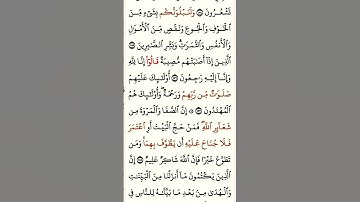 تَشْعُرُونَ وَلَنَبْلُوَنَّكُم بِشَىْءٍ مِّنَ
ٱلْخَوْفِ وَٱلْجُوعِ وَنَقْصٍ مِّنَ ٱلْأَمْوَٰلِ
وَٱلْأَنفُسِ وَٱلثَّمَرَٰتِ ۗ وَبَشِّرِ ٱلصَّٰبِرِينَ
ٱلَّذِينَ إِذَآ أَصَٰبَتْهُم مُّصِيبَةٌ قَالُوٓا۟ إِنَّا لِلَّهِ
وَإِنَّآ إِلَيْهِ رَٰجِعُونَ أُو۟لَٰٓئِكَ عَلَيْهِمْ
صَلَوَٰتٌ مِّن رَّبِّهِمْ وَرَحْمَةٌ ۖ وَأُو۟لَٰٓئِكَ هُمُ
ٱلْمُهْتَدُونَ ۞ إِنَّ ٱلصَّفَا وَٱلْمَرْوَةَ مِن
شَعَآئِرِ ٱللَّهِ ۖ فَمَنْ حَجَّ ٱلْبَيْتَ أَوِ ٱعْتَمَرَ
فَلَا جُنَاحَ عَلَيْهِ أَن يَطَّوَّفَ بِهِمَا ۚ وَمَن
تَطَوَّعَ خَيْرًا فَإِنَّ ٱللَّهَ شَاكِرٌ عَلِيمٌ إِنَّ
ٱلَّذِينَ يَكْتُمُونَ مَآ أَنزَلْنَا مِنَ ٱلْبَيِّنَٰتِ
وَٱلْهُدَىٰ مِنۢ بَعْدِ مَا بَيَّنَّٰهُ لِلنَّاسِ فِى